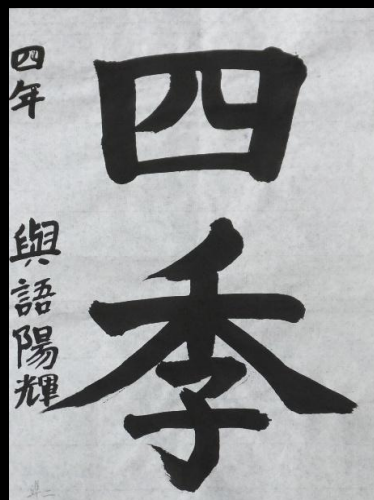 四季
四年
與語陽輝